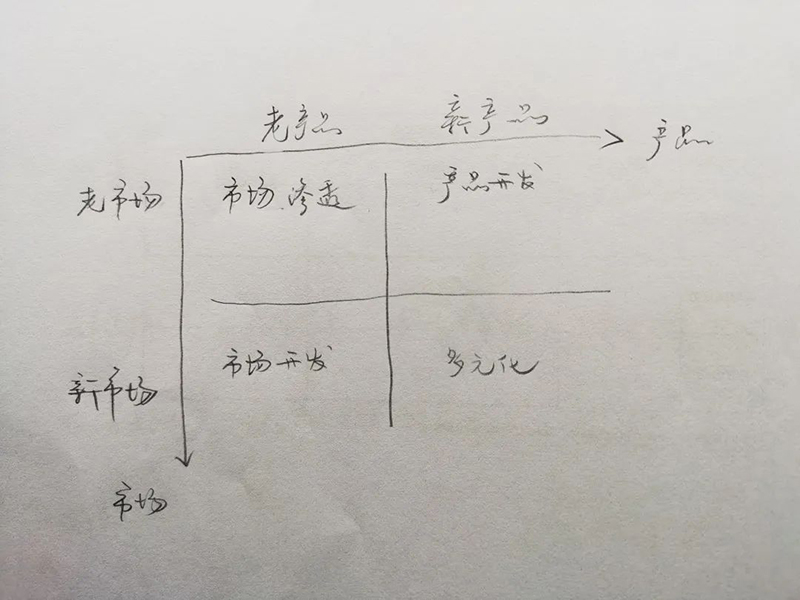 老产品 新产品
产品
老市场 市场渗透 产品开发
新市场 市场开发 多元化
市场